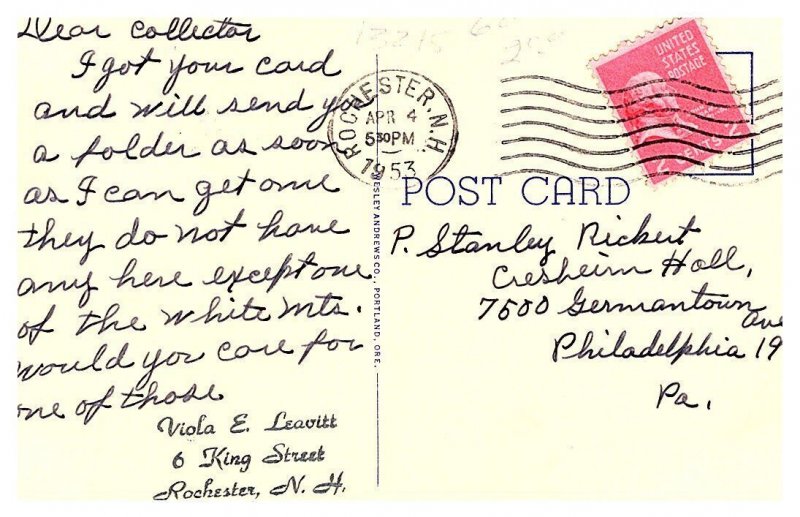 Dear Collector
I got your card
and will send you
a folder as soon
as I can get one
they do not have
any here except one
of the White Mts.
would you care for
one of those
Viola E. Leavitt
6 King Street
Rochester, N. H.
13215
60
25¢
ROCHESTER, N.H.
APR 4
530 PM
1953
UNITED
STATES
POSTAGE
2 CENTS 2
POST CARD
WESLEY ANDREWS CO., PORTLAND, ORE.
P. Stanley Rickert
Cresheim Hall,
7500 Germantown
ave
Philadelphia 19
Pa.